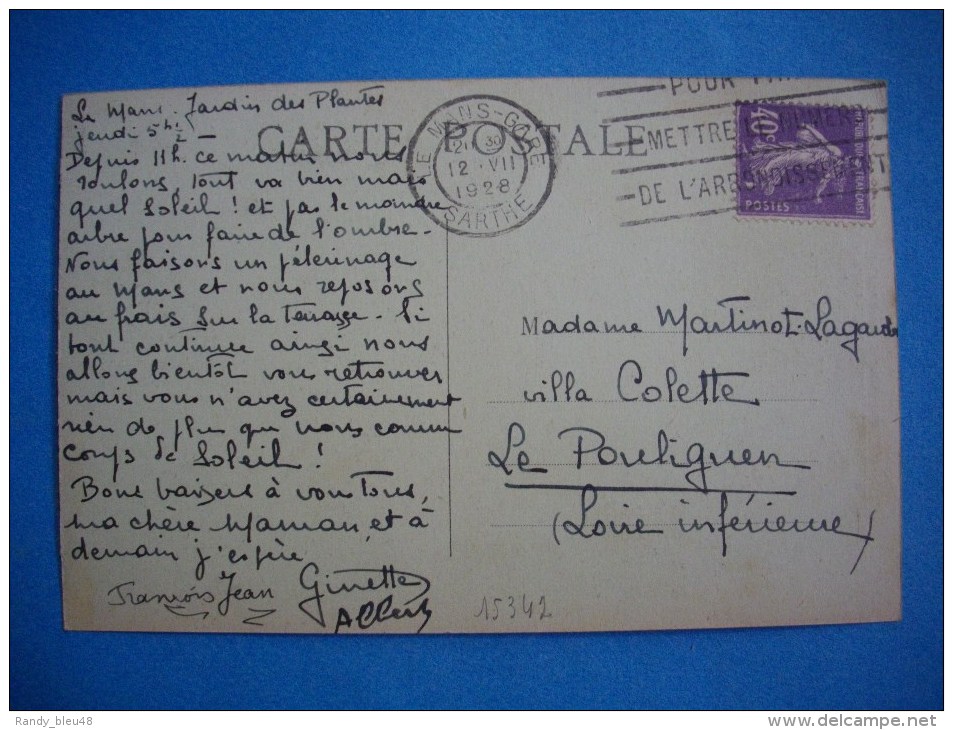 Le Mans - Jardin des Plantes
jeudi 5h 1/2 -
CARTE POSTALE
Depuis 11h. ce matin nous
roulons, tout va bien mais
quel soleil ! et pas le moindre
arbre pour faire de l'ombre -
Nous faisons un pélerinage
au Mans et nous reposons
au frais sur la terrasse - Si
tout continue ainsi nous
allons bientôt vous retrouver
mais vous n'avez certainement
rien de plus que nous comme
coups de Soleil !
Bons baisers à vous tous,
ma chère Maman, et à
demain j'espère
François Jean Ginette
Albert
LE MANS-GARE
30
12 · VII
1928
SARTHE
POUR
METTRE NUMERO
DE L'ARRONDISSEMENT
40c
REPUBLIQUE FRANÇAISE
POSTES
Madame Martinot-Lagarde
villa Colette
Le Pouliguen
(Loire inférieure)
15342
Randy_bleu48
http://www.delcampe.net